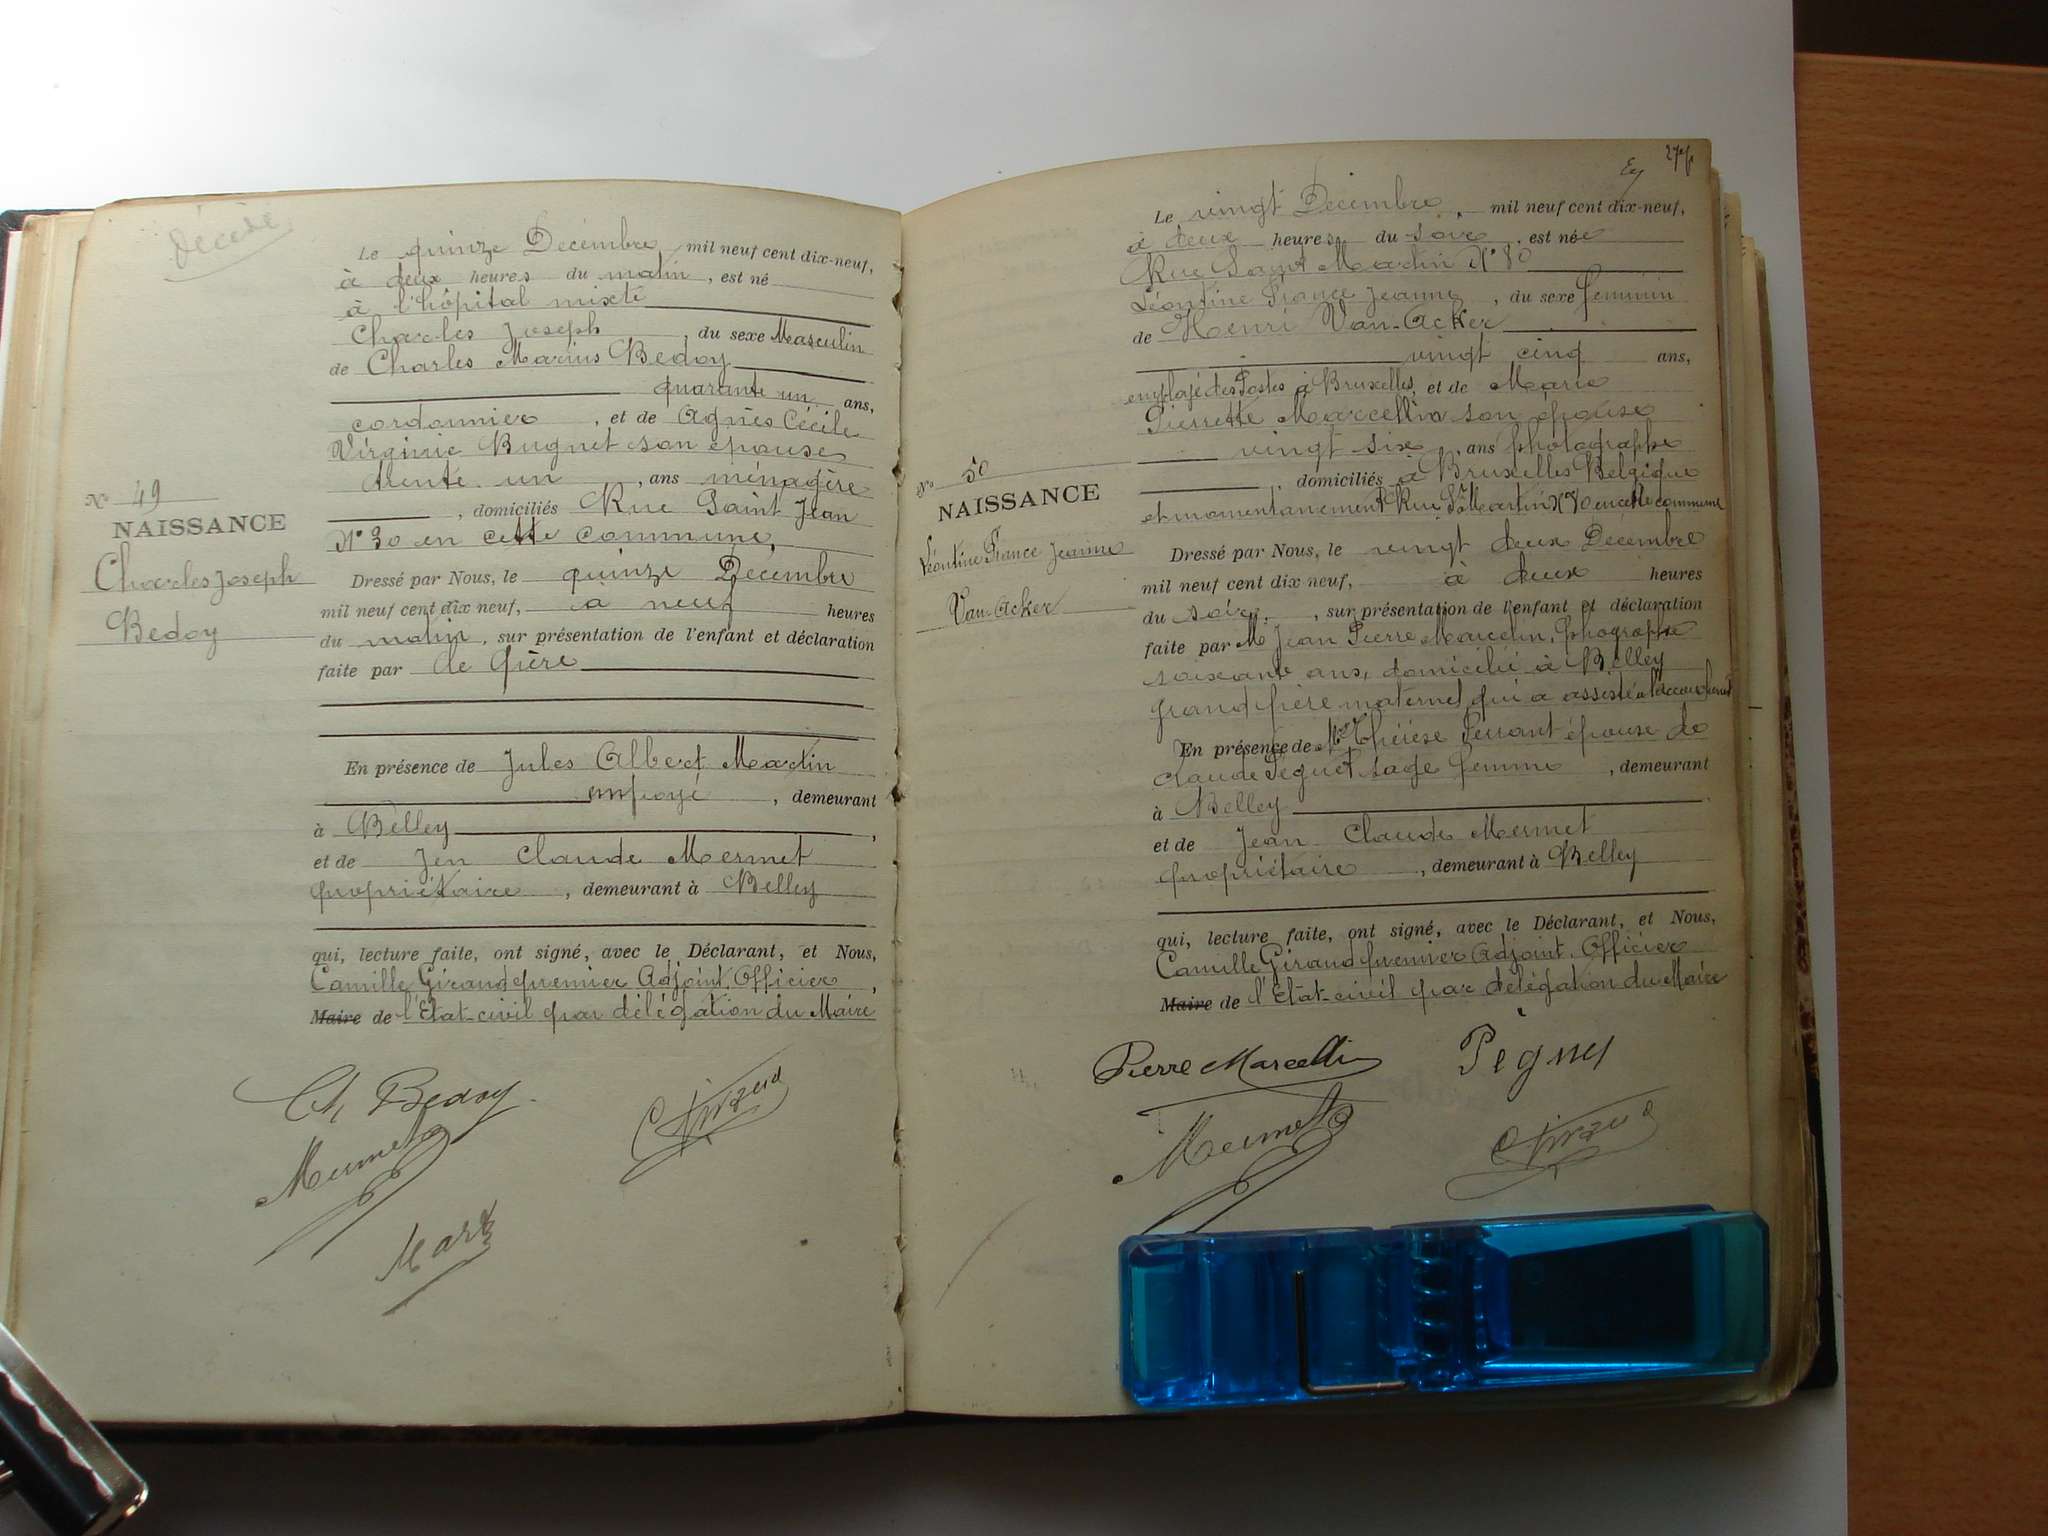 Décédé
Le quinze Décembre mil neuf cent dix-neuf,
à deux heures du matin, est né
à l'hôpital mixte
Charles Joseph, du sexe Masculin
de Charles Marius Bedoy
quarante un ans,
cordonnier, et de Agnès Cécile
Virginie Bugnet son épouse
trente un, ans ménagère
, domiciliés Rue Saint Jean
N° 30 en cette commune,
N° 49
NAISSANCE
Charles Joseph
Bedoy
Dressé par Nous, le quinze Décembre
mil neuf cent dix neuf, à neuf heures
du matin, sur présentation de l'enfant et déclaration
faite par le père
En présence de Jules Albert Martin
employé, demeurant
à Belley,
et de Jen Claude Mermet
propriétaire, demeurant à Belley
qui, lecture faite, ont signé, avec le Déclarant, et Nous,
Camille Giraud premier Adjoint, Officier,
Maire de l'Etat-civil par délégation du Maire
Ch. Bedoy
C Giraud
Mermet
Mart
Le vingt Décembre, mil neuf cent dix-neuf,
à deux heures du soir, est née
Rue Saint Martin N° 80
Léontine France Jeanne, du sexe féminin
de Henri Van-Acker
vingt cinq ans,
employé des Postes à Bruxelles, et de Marie
Pierrette Marcellin son épouse
vingt six, ans photographe
, domiciliés à Bruxelles Belgique
et momentanément Rue St Martin N° 80 en cette commune
N° 50
NAISSANCE
Léontine France Jeanne
Van-Acker
Dressé par Nous, le vingt deux Décembre
mil neuf cent dix neuf, à deux heures
du soir, sur présentation de l'enfant et déclaration
faite par M Jean Pierre Marcelin, phographe
soixante ans, domicilié à Belley
grand père maternel qui a assisté à l'accouchement
En présence de Mme Thérèse Perrant épouse de
Claude Péguet sage femme, demeurant
à Belley
et de Jean Claude Mermet
propriétaire, demeurant à Belley
qui, lecture faite, ont signé, avec le Déclarant, et Nous,
Camille Giraud premier Adjoint, Officier
Maire de l'Etat-civil par délégation du Maire
Pierre Marcellin
Mermet
C Giraud